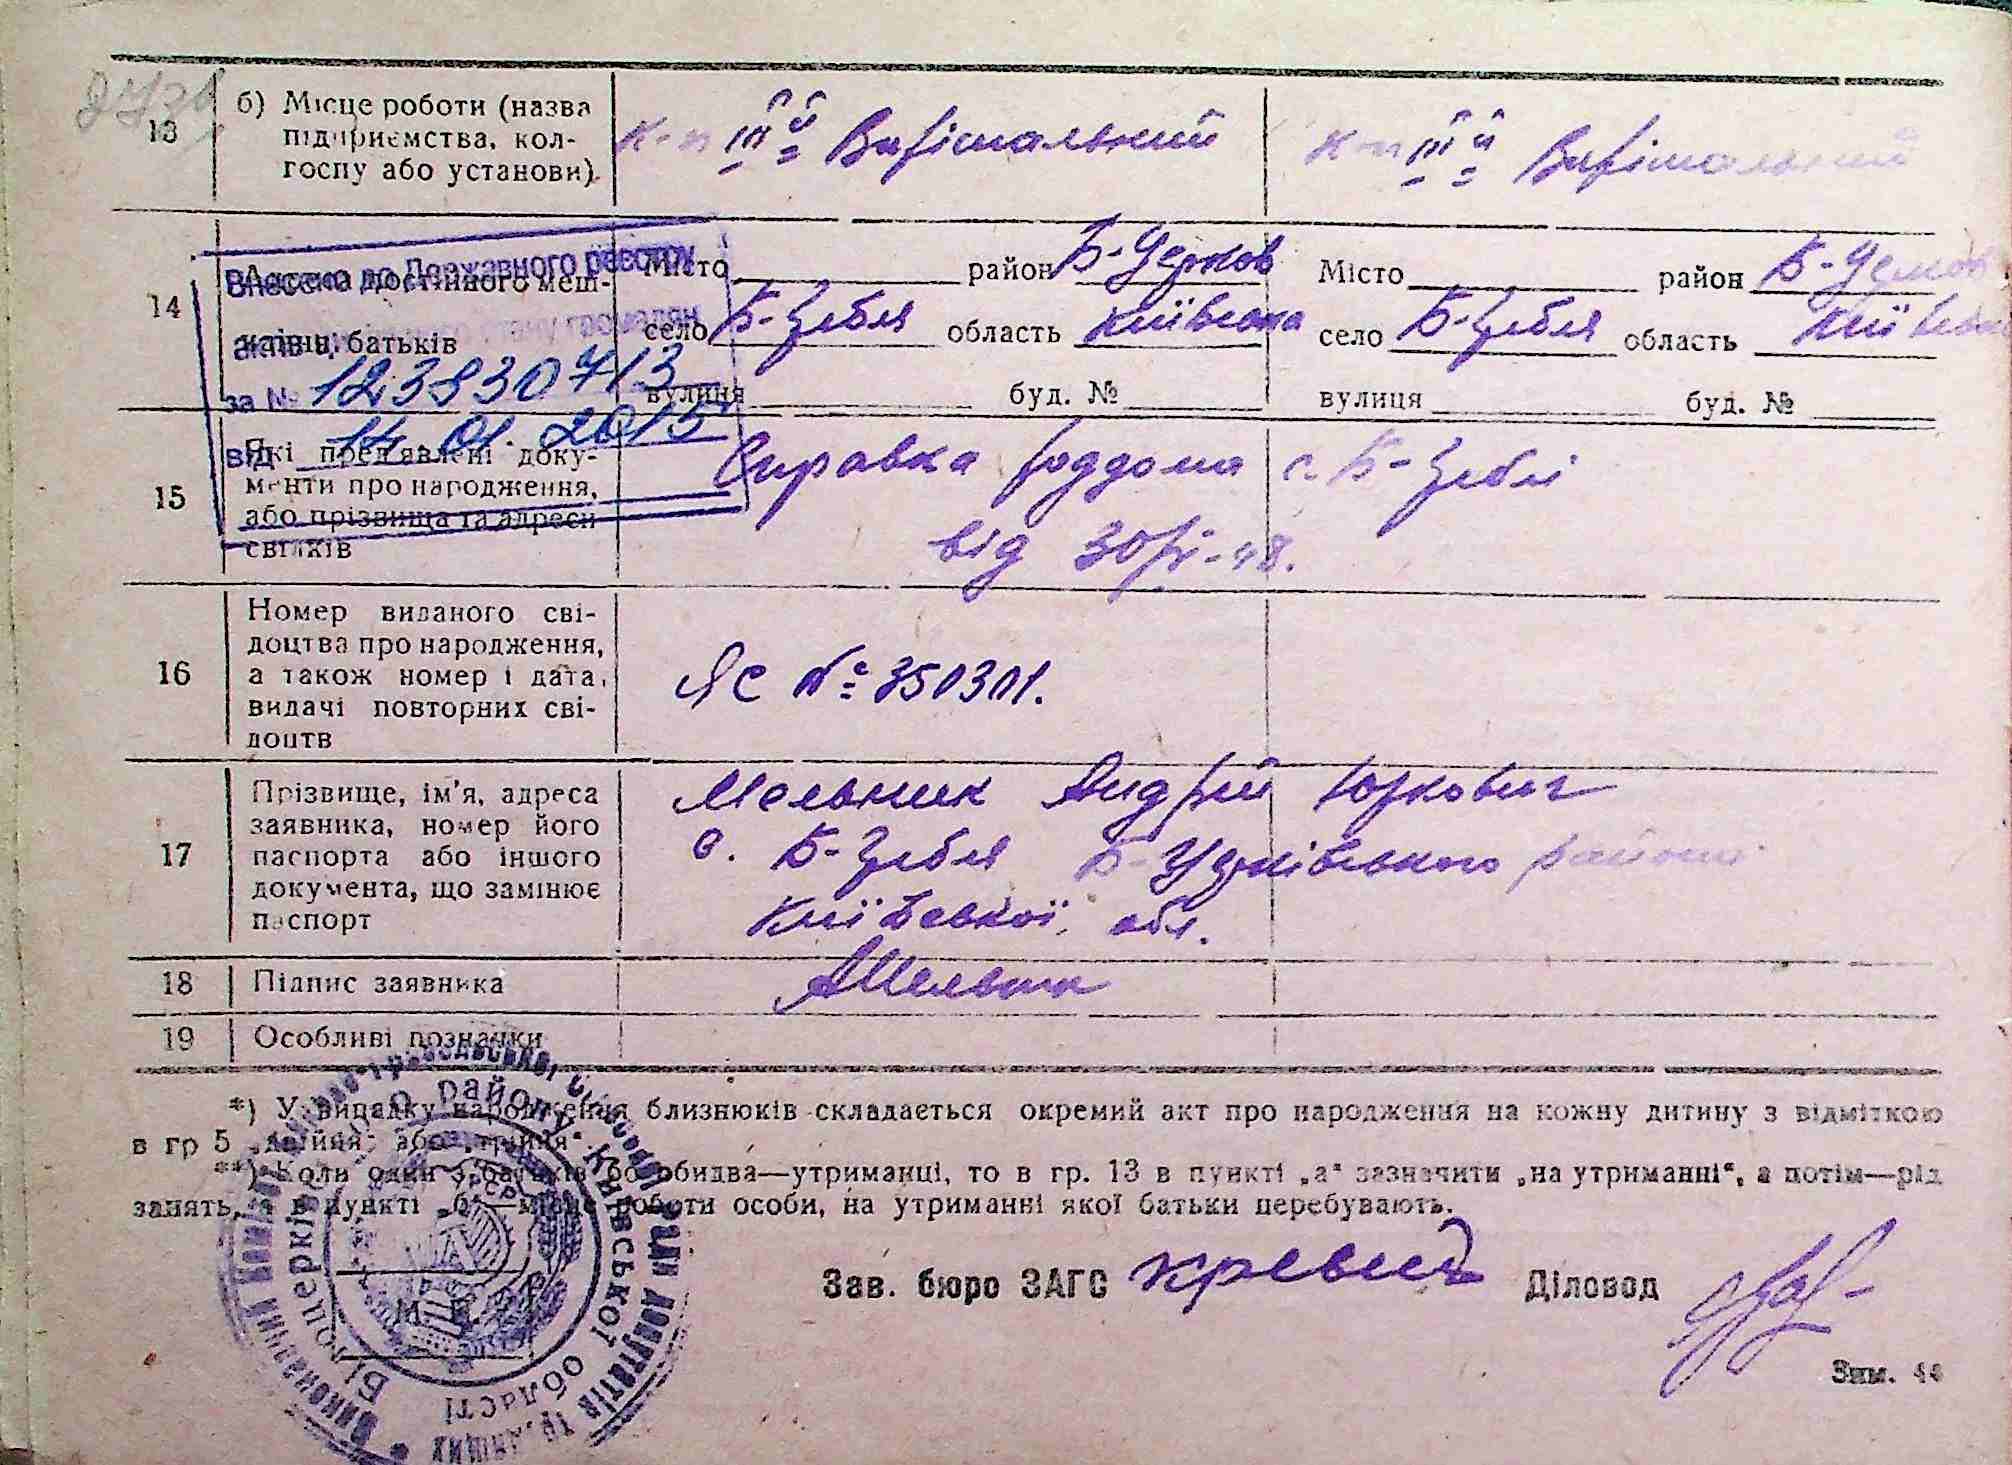 13
б) Місце роботи (назва
підприємства, кол-
госпу або установи).
к-п ІІІй Вирішальний
к-п ІІІй Вирішальний
14
Адреса постійного меш-
канця: батьків
Місто район Б-Церков
село Б-Церков область Київська
вулиця буд. №
Місто район Б-Церков
село область Київська
вулиця буд. №
Внесено до Державного реєстру
актів цивільного стану громадян
за № 12383071 3
від 14. 01. 2015
15
Які пред'явлені доку-
менти про народження,
або прізвища та адреси
свідків
Справка роддома с. Б-
від 30/ -48.
16
Номер виданого сві-
доцтва про народження,
а також номер і дата,
видачі повторних сві-
доцтв
ЯС № 350301.
17
Прізвище, ім'я, адреса
заявника, номер його
паспорта або іншого
документа, що замінює
паспорт
Мельник Андрій Юркович
с. Б- Б-Церківського району
Київської обл.
18
Підпис заявника
АМельник
19
Особливі позначки
*) У випадку народження близнюків складається окремий акт про народження на кожну дитину з відміткою
в гр 5 „двійня" або „трійня".
**) Коли один з батьків бо обидва—утриманці, то в гр. 13 в пункті „а" зазначити „на утриманні", а потім—рід
занять, а в пункті „б"—місце роботи особи, на утриманні якої батьки перебувають.
Зав. бюро ЗАГС Діловод
М. П.
Білоцерківського району Київської області
Зам. 44